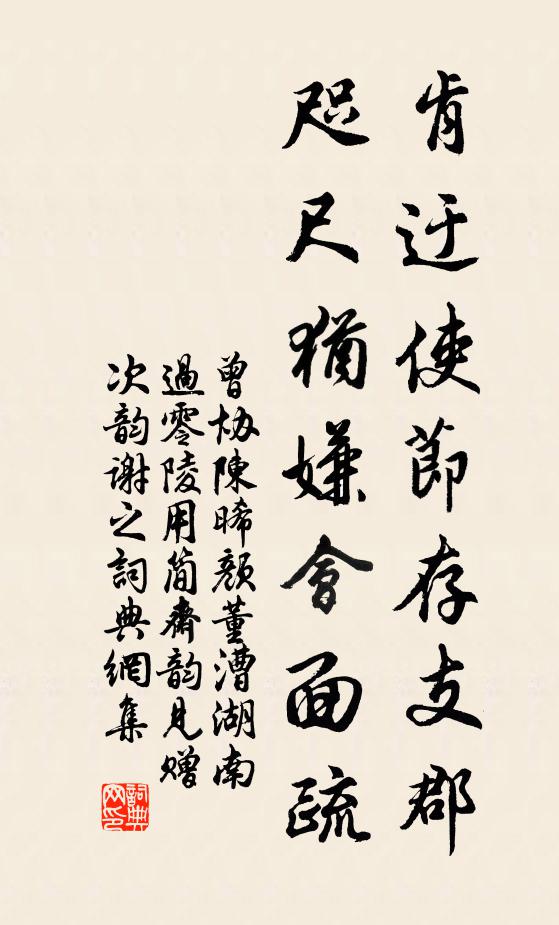 肯迂使節存支郡
咫尺猶嫌會面疏
曾協陳晞顏董漕湖南
過零陵用簡齋韵見贈
次韵謝之詞典網集
詞典網印